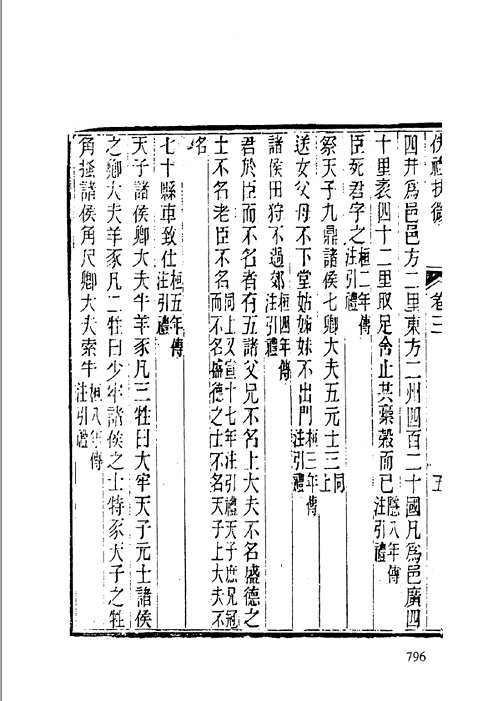 佚禮扶微 卷三 五
四井爲邑邑方二里東方二州四百二十國凡爲邑廣四
十里袤四十二里取足舍止共藁穀而已隱八年傳注引禮
臣死君字之桓二年傳注引禮
祭天子九鼎諸侯七卿大夫五元士三同上
送女父母不下堂姑姊妹不出門桓三年傳注引禮
諸侯田狩不過郊桓四年傳注引禮
君於臣而不名者有五諸父兄不名上大夫不名盛德之
士不名老臣不名同上又宣十七年注引禮天子庶兄冠而不名盛德之士不名天子上大夫不
名
七十縣車致仕桓五年傳注引禮
天子諸侯卿大夫牛羊豕凡三牲曰大牢天子元士諸侯
之卿大夫羊豕凡二牲曰少牢諸侯之士特豕天子之牲
角握諸侯角尺卿大夫索牛桓八年傳注引禮
796